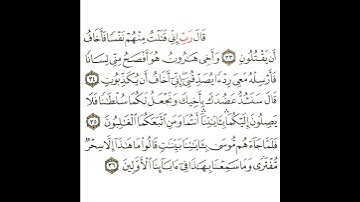 قَالَ رَبِّ إِنِّي قَتَلْتُ مِنْهُمْ نَفْسًا فَأَخَافُ
أَن يَقْتُلُونِ ٣٣ وَأَخِي هَٰرُونُ هُوَ أَفْصَحُ مِنِّي لِسَانًا
فَأَرْسِلْهُ مَعِيَ رِدْءًا يُصَدِّقُنِي إِنِّي أَخَافُ أَن يُكَذِّبُونِ ٣٤
قَالَ سَنَشُدُّ عَضُدَكَ بِأَخِيكَ وَنَجْعَلُ لَكُمَا سُلْطَٰنًا فَلَا
يَصِلُونَ إِلَيْكُمَا بِـَٔايَٰتِنَا أَنتُمَا وَمَنِ اتَّبَعَكُمَا الْغَٰلِبُونَ ٣٥
فَلَمَّا جَاءَهُم مُّوسَىٰ بِـَٔايَٰتِنَا بَيِّنَٰتٍ قَالُوا مَا هَٰذَا إِلَّا سِحْرٌ
مُّفْتَرًى وَمَا سَمِعْنَا بِهَٰذَا فِي ءَابَائِنَا الْأَوَّلِينَ ٣٦